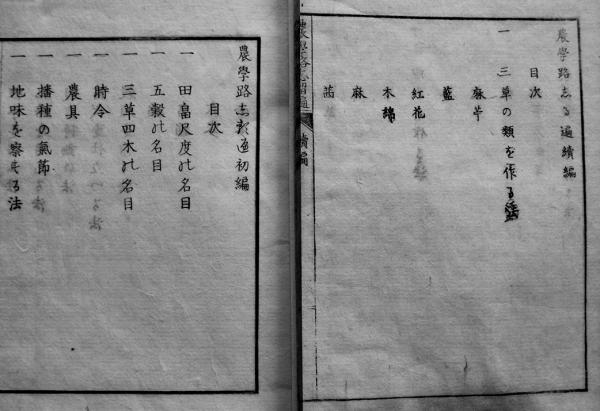 農學路志る遍續編
目次
一 三草の類を作る法
麻苧
藍
紅花
木綿
麻
茜
續編
農學路志 遍初編
目次
一 田畠尺度の名目
一 五穀の名目
一 三草四木の名目
一 時令
一 農具
一 播種の氣節
一 地味を察する法